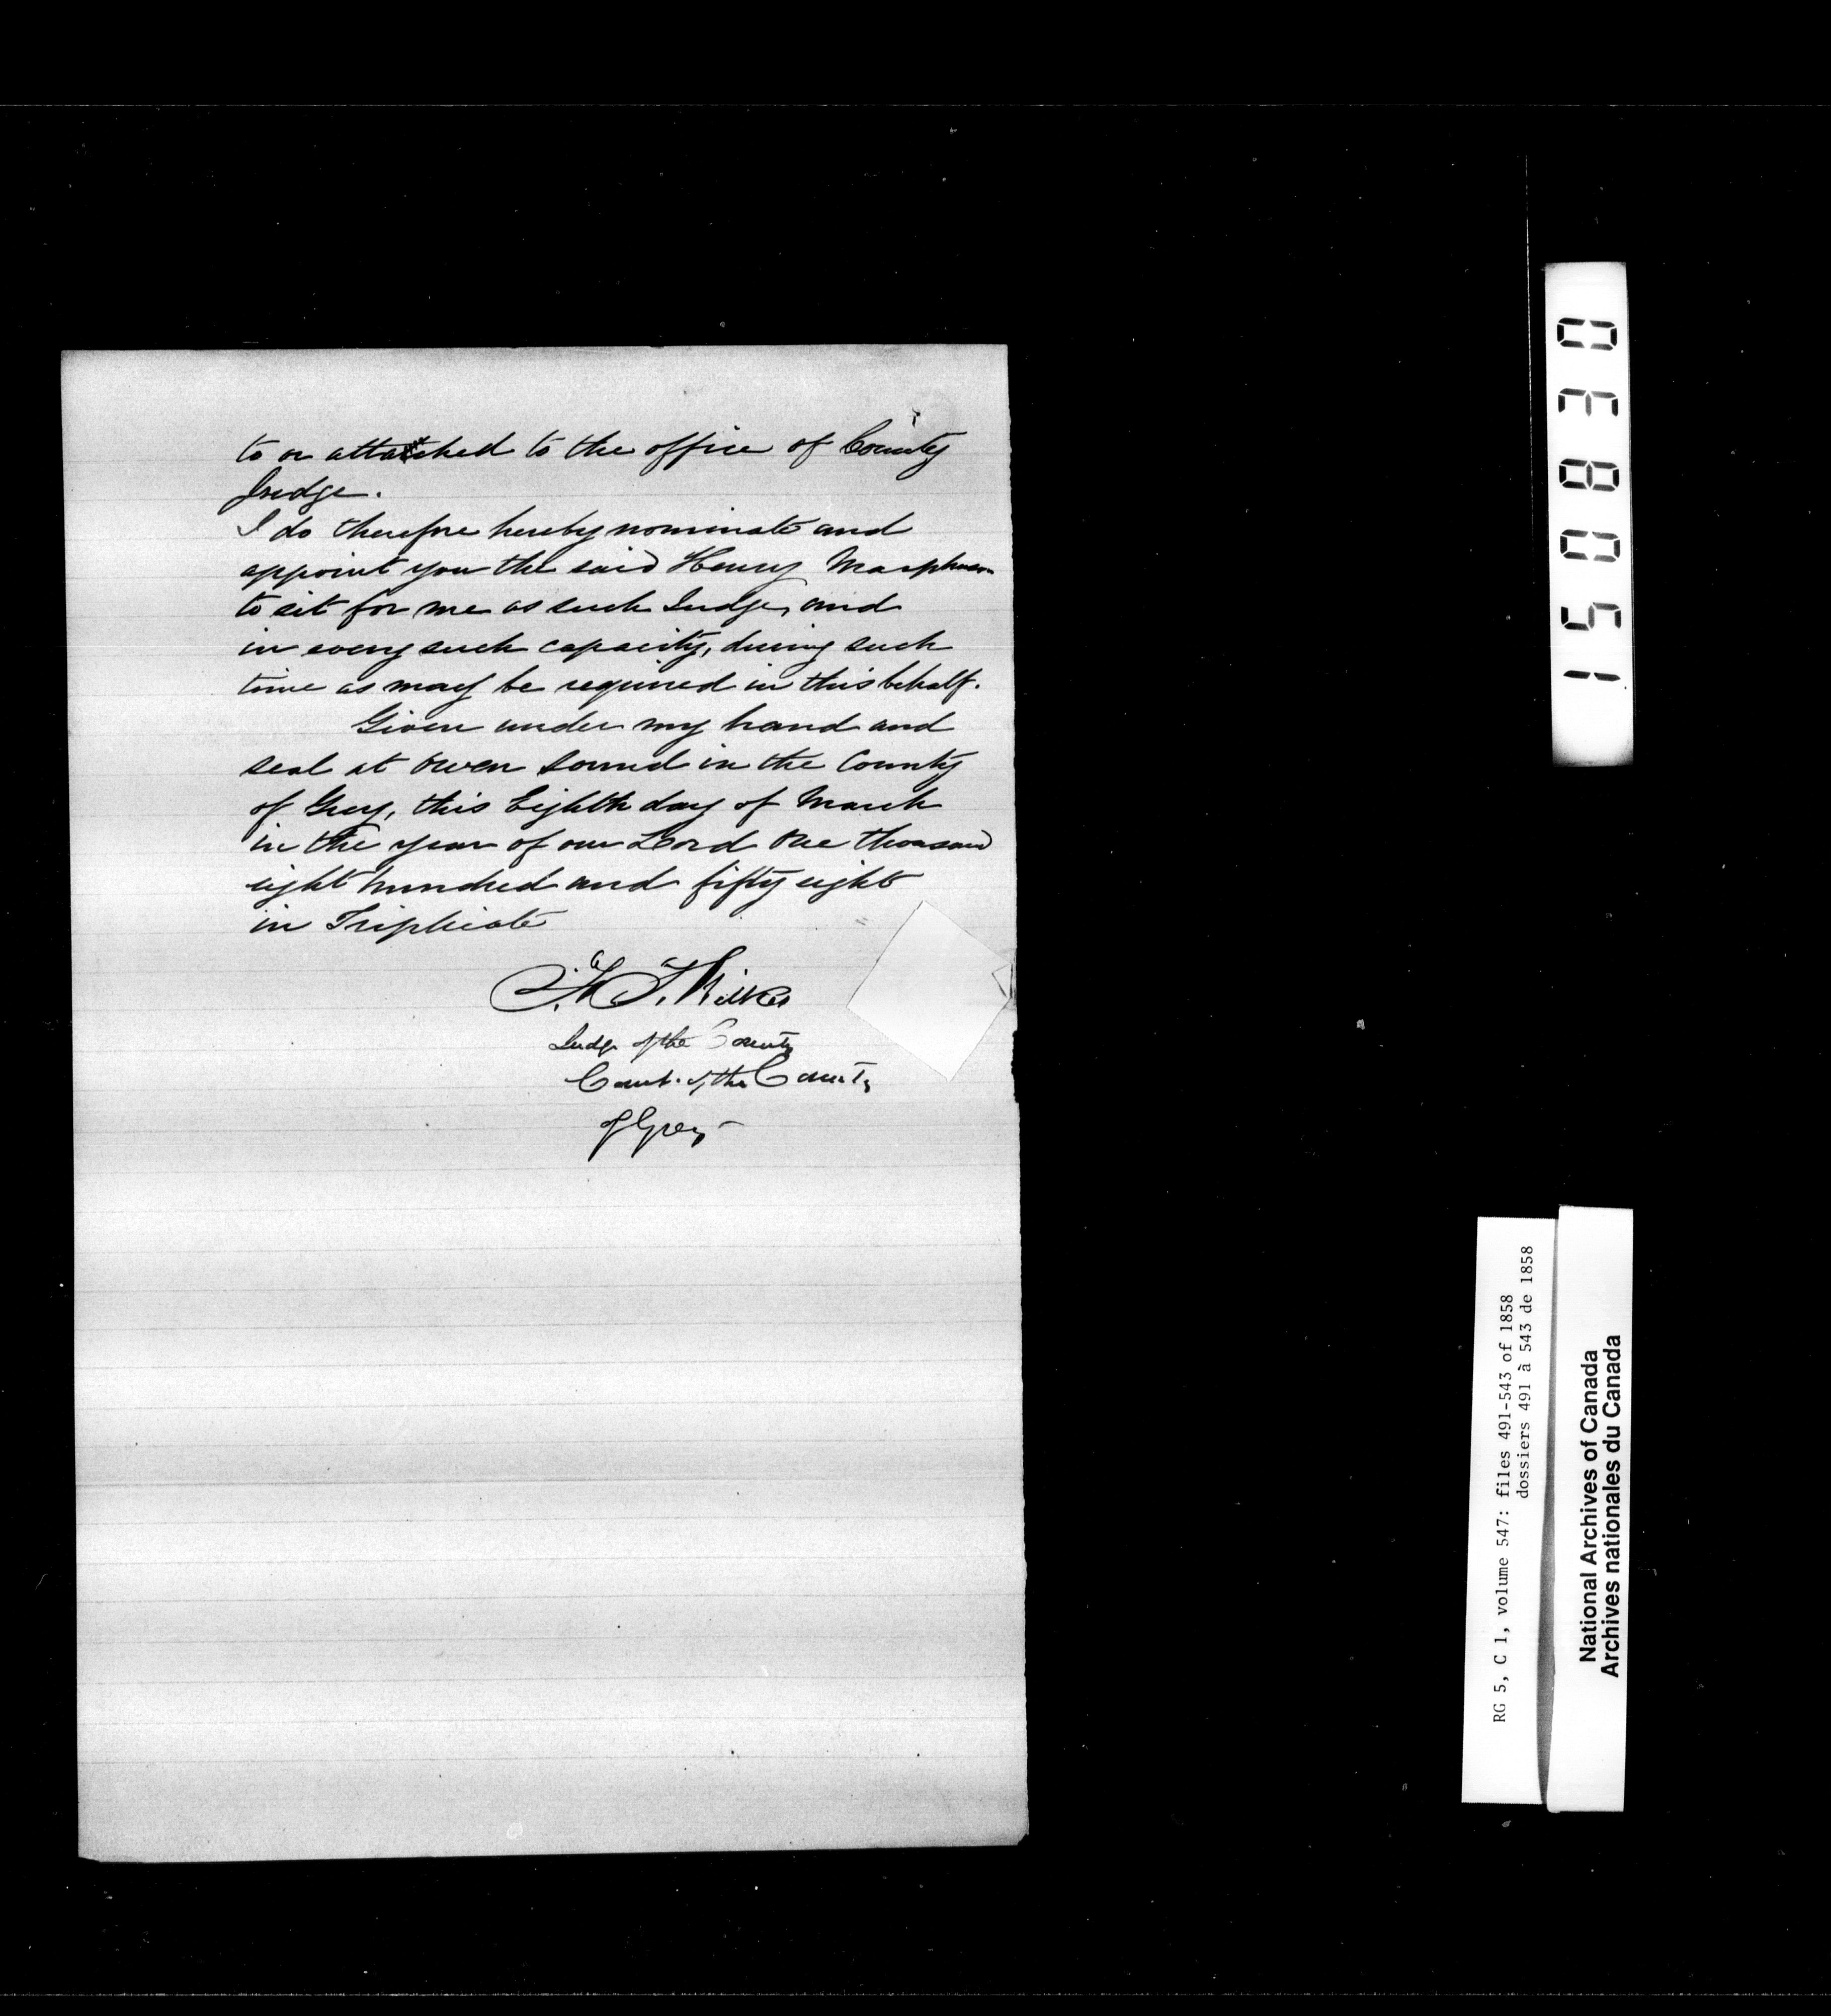 to or attatched to the office of County
Judge.
I do therefore hereby nominate and
appoint you the said Henry Macpherson
to sit for me as such Judge, and
in every such capacity, during such
time as may be required in this behalf.
Given under my hand and
seal at Owen Sound in the County
of Grey, this Eighth day of March
in the year of our Lord One thousand
eight hundred and fifty eight
in Triplicate
Wilkes
Judge of the County
Court of the County
of Grey
038051
RG 5, C 1, volume 547: files 491-543 of 1858
dossiers 491 à 543 de 1858
National Archives of Canada
Archives nationales du Canada